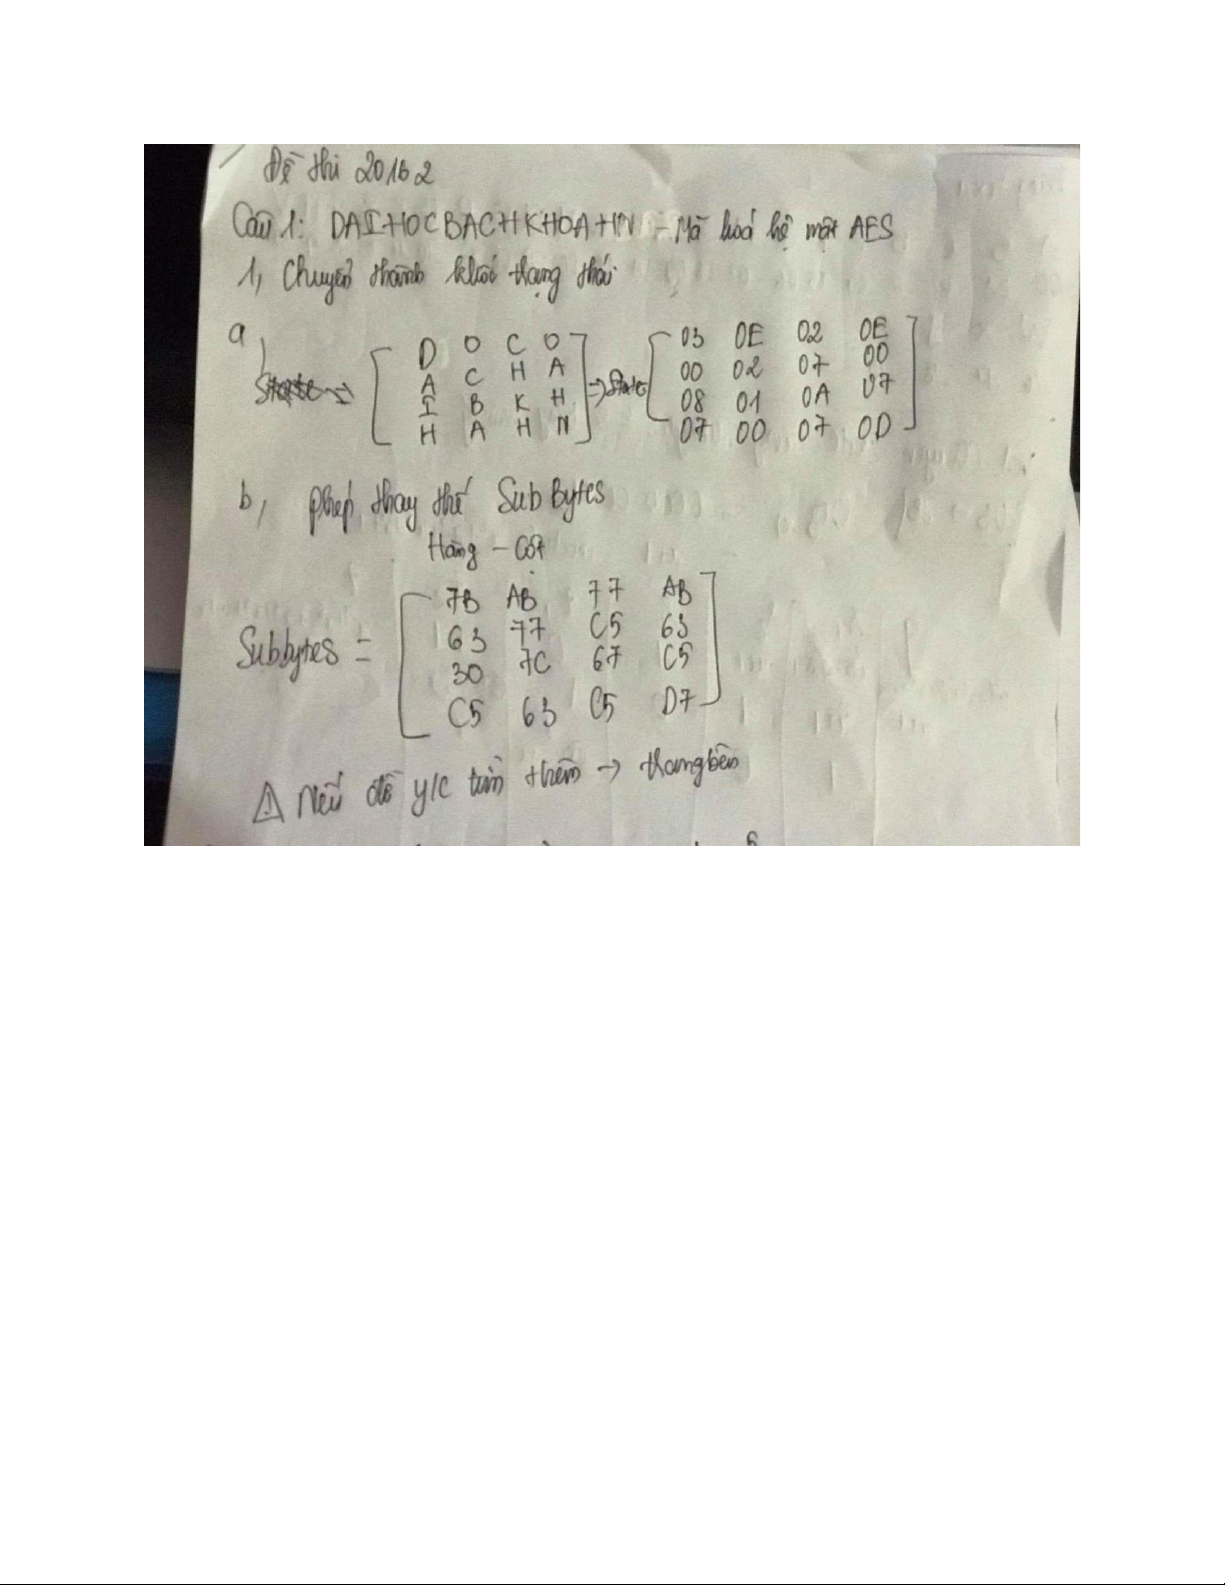 Đề thi 20162
Câu 1: DAIHOCBACHKHOAHN - Mã hoá hệ mật AES
1, Chuyển thành khối trạng thái
a,
D O C O
A C H A
I B K H
H A H N
=> State
03 0E 02 0E
00 02 07 00
08 01 0A 07
07 00 07 0D
b, phép thay thế SubBytes
Hàng - Cột
Subbytes =
7B AB 77 AB
63 77 C5 63
30 7C 67 C5
C5 63 C5 D7
⚠ Nếu đề y/c tìm thêm → trang bên